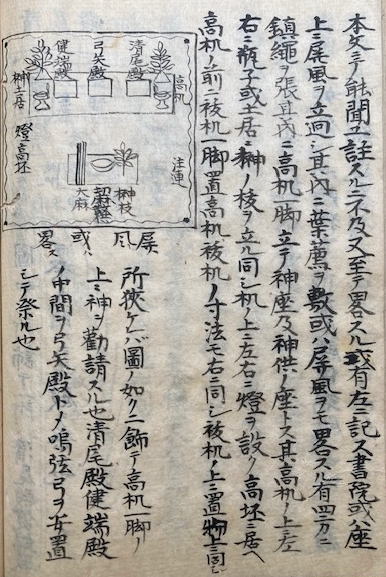 本文ニテ能聞ユ註スルニ不及又至テ畧スル或有左ニ記ス書院或ハ座
上ニ屏風ヲ立廻シ其内ニ葉薦ヲ敷或ハ屏風ヲモ畧スル有四方ニ
鎮縄ヲ張其内ニ高机一脚立テ神座及神供ノ座トス其高机ノ上ニ左
右ニ瓶子或土居ニ榊ノ枝ヲ立ル同シ机ノ上ニ左右ニ燈ヲ設ク高坏ニ居ヘ
高机ノ前ニ祓机一脚置高机祓机ノ寸法モ右ニ同シ祓机ノ上ニ置物モ同シ
清尾殿
弓矢殿
健端殿
高机
榊土居
燈高坏
注連
榊枝
大麻
屏風
或ハ
畧ス
所狭ケバ圖ノ如クニ飾テ高机一脚ノ
上ニ神ヲ勸請スル也清尾殿健端殿
ノ中間ヲ弓矢殿トノ鳴弦弓ヲ安置
シテ祭ル也